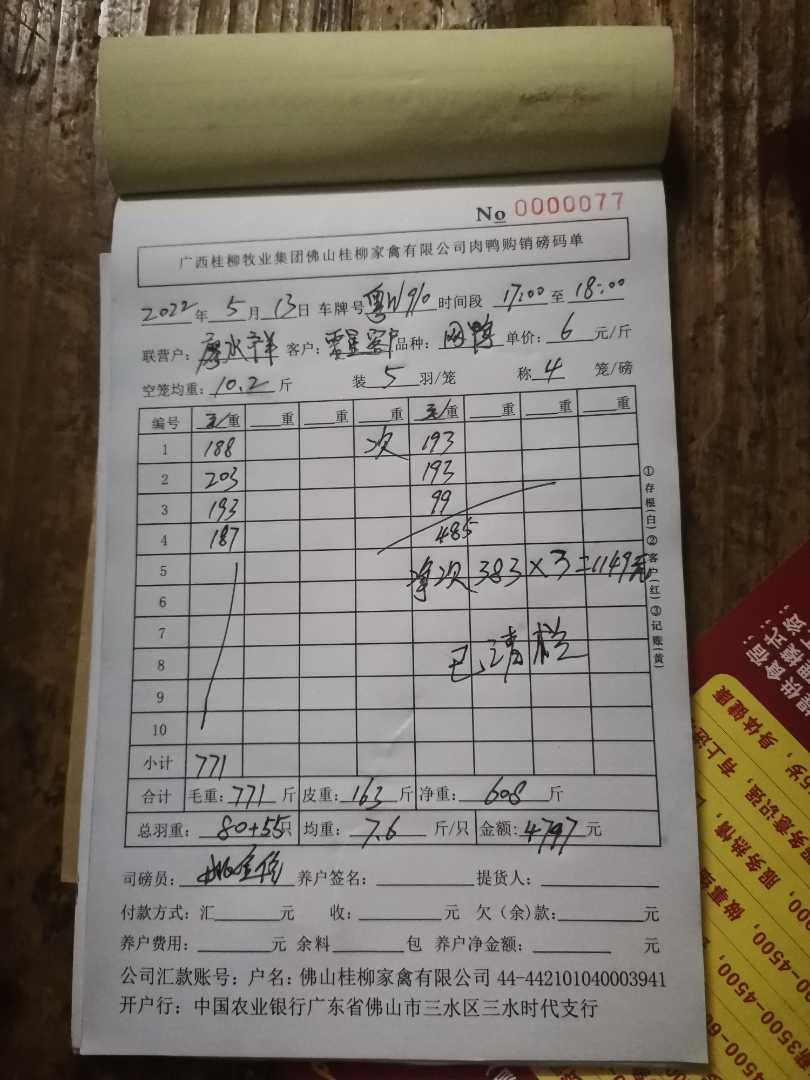 No 0000077
广西桂柳牧业集团佛山桂柳家禽有限公司肉鸭购销磅码单
2022年 5月 13日 车牌号 粤 时间段 17:00 至 18:00
联营户: 廖水 客户: 零星客户 品种: 鸭 单价: 6 元/斤
空笼均重: 10.2 斤 装 5 羽/笼 称 4 笼/磅
编号 毛/重 重 重 重 毛/重 重 重 重
1 188 次 193
2 203 193
3 193 99
4 187 485
5 净次 383×3=1149元
6
7
8 已清栏
9
10
小计 771
合计 毛重: 771 斤 皮重: 163 斤 净重: 608 斤
总羽重: 80+55只 均重: 7.6 斤/只 金额: 4797 元
司磅员: 养户签名: 提货人:
付款方式: 汇 元 收: 元 欠(余)款: 元
养户费用: 元 余料 包 养户净金额: 元
公司汇款账号: 户名: 佛山桂柳家禽有限公司 44-442101040003941
开户行: 中国农业银行广东省佛山市三水区三水时代支行
①存根(白)②客户(红)③记账(黄)
提供食宿;
身体健康
有上进
服务意识强,
服务热情,
做事
3500-4500,